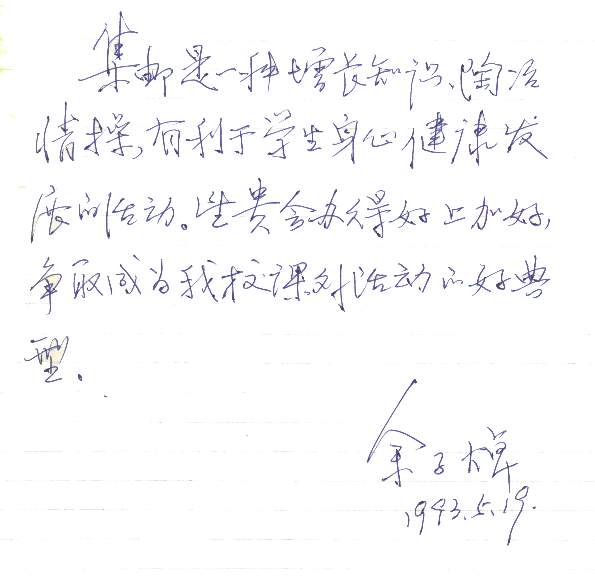 集邮是一种增长知识、陶冶
情操，有利于学生身心健康发
展的活动。望贵会办得好上加好，
争取成为我校课外活动的好典
型。
余子
1993.5.19.